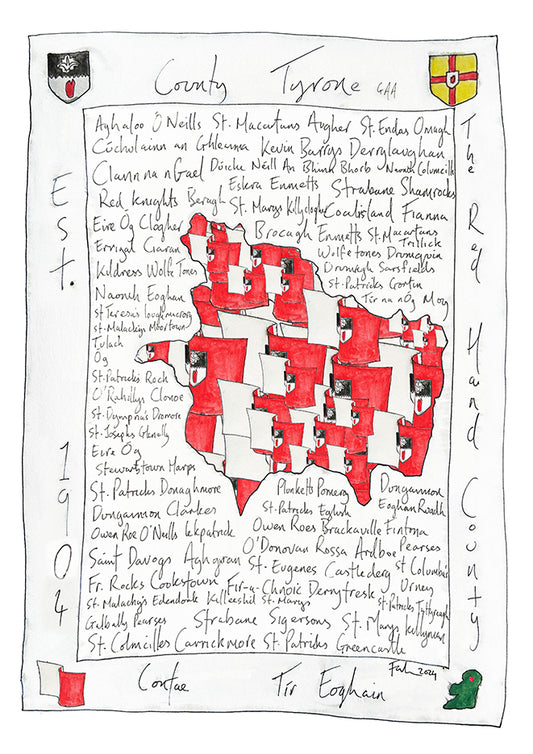 County Tyrone GAA
Est. 1904
The Red Hand County
Aghaloo O Neills St. Macartans Augher St. Endas Omagh
Cúchulainn an Ghleanna Kevin Barrys Derrylaughan
Clann na nGael Dúiche Néill An Bhinn Bhorb Naomh Columcille
Eskra Emmetts Strabane Shamrocks
Red Knights Beragh St. Marys Killyclogher Coalisland Fianna
Eire Óg Clogher Brocagh Emmetts St. Macartans Trillick
Errigal Ciaran Wolfe tones Drumquin
Kildress Wolfe Tones Drumragh Sarsfields
St. Patricks Gortin
Naomh Eoghan Tír na nÓg Moy
St Teresas loughmacrory
St. Malachys Moortown
Tulach
Óg
St. Patricks Rock
O'Rahillys Clonoe
St. Dympna's Dromore
St. Josephs Glenelly
Eire Óg
Stewartstown Harps
St. Patricks Donaghmore Plunketts Pomeroy Dungannon
Dungannon Clarkes St. Patricks Eglish Eoghan Ruadh
Owen Roe O'Neills Owen Roes Brackaville Fintona
O'Donovan Rossa Ardboe Pearses
Saint Davogs Aghyaran St. Eugenes Castlederg St Columba's
Fr. Rocks Cookstown Fir-a-Chnoic Derrytresk Urney
St. Malachy's Edendork Killeeshil St. Marys St. Patricks
Galbally Pearses Strabane Sigersons St. Marys Killyman
St. Colmcilles Carrickmore St. Patricks Greencastle
2024
Contae Tír Eoghain